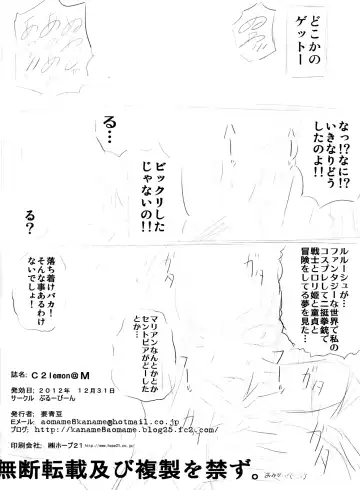 どこかの
ゲットー
なっ!?なに!?
いきなりどう
したのよ!!
ハーッ
ハーッ
る…
ビックリした
じゃないの!!
る?
ルルーシュが…
ファンタジーな世界で私の
コスプレして二挺拳銃で
戦士とロリ姫と童貞と
冒険をしてる夢を見た…
ガタ
ガタ
落ち着けバカ!
そんな事あるわけ
ないでしょ!
マリアンなんとかとか
セントピアがどーした
とか…
誌名: C2lemon@M
発効日: 2012年 12月31日
サークル ぷるーびーん
発行者: 要青豆
Eメール: aomame8kaname@hotmail.co.jp
ブログ: http://kaname8aomame.blog25.fc2.com/
印刷会社: ㈱ホープ21 http://www.hope21.co.jp/
無断転載及び複製を禁ず。